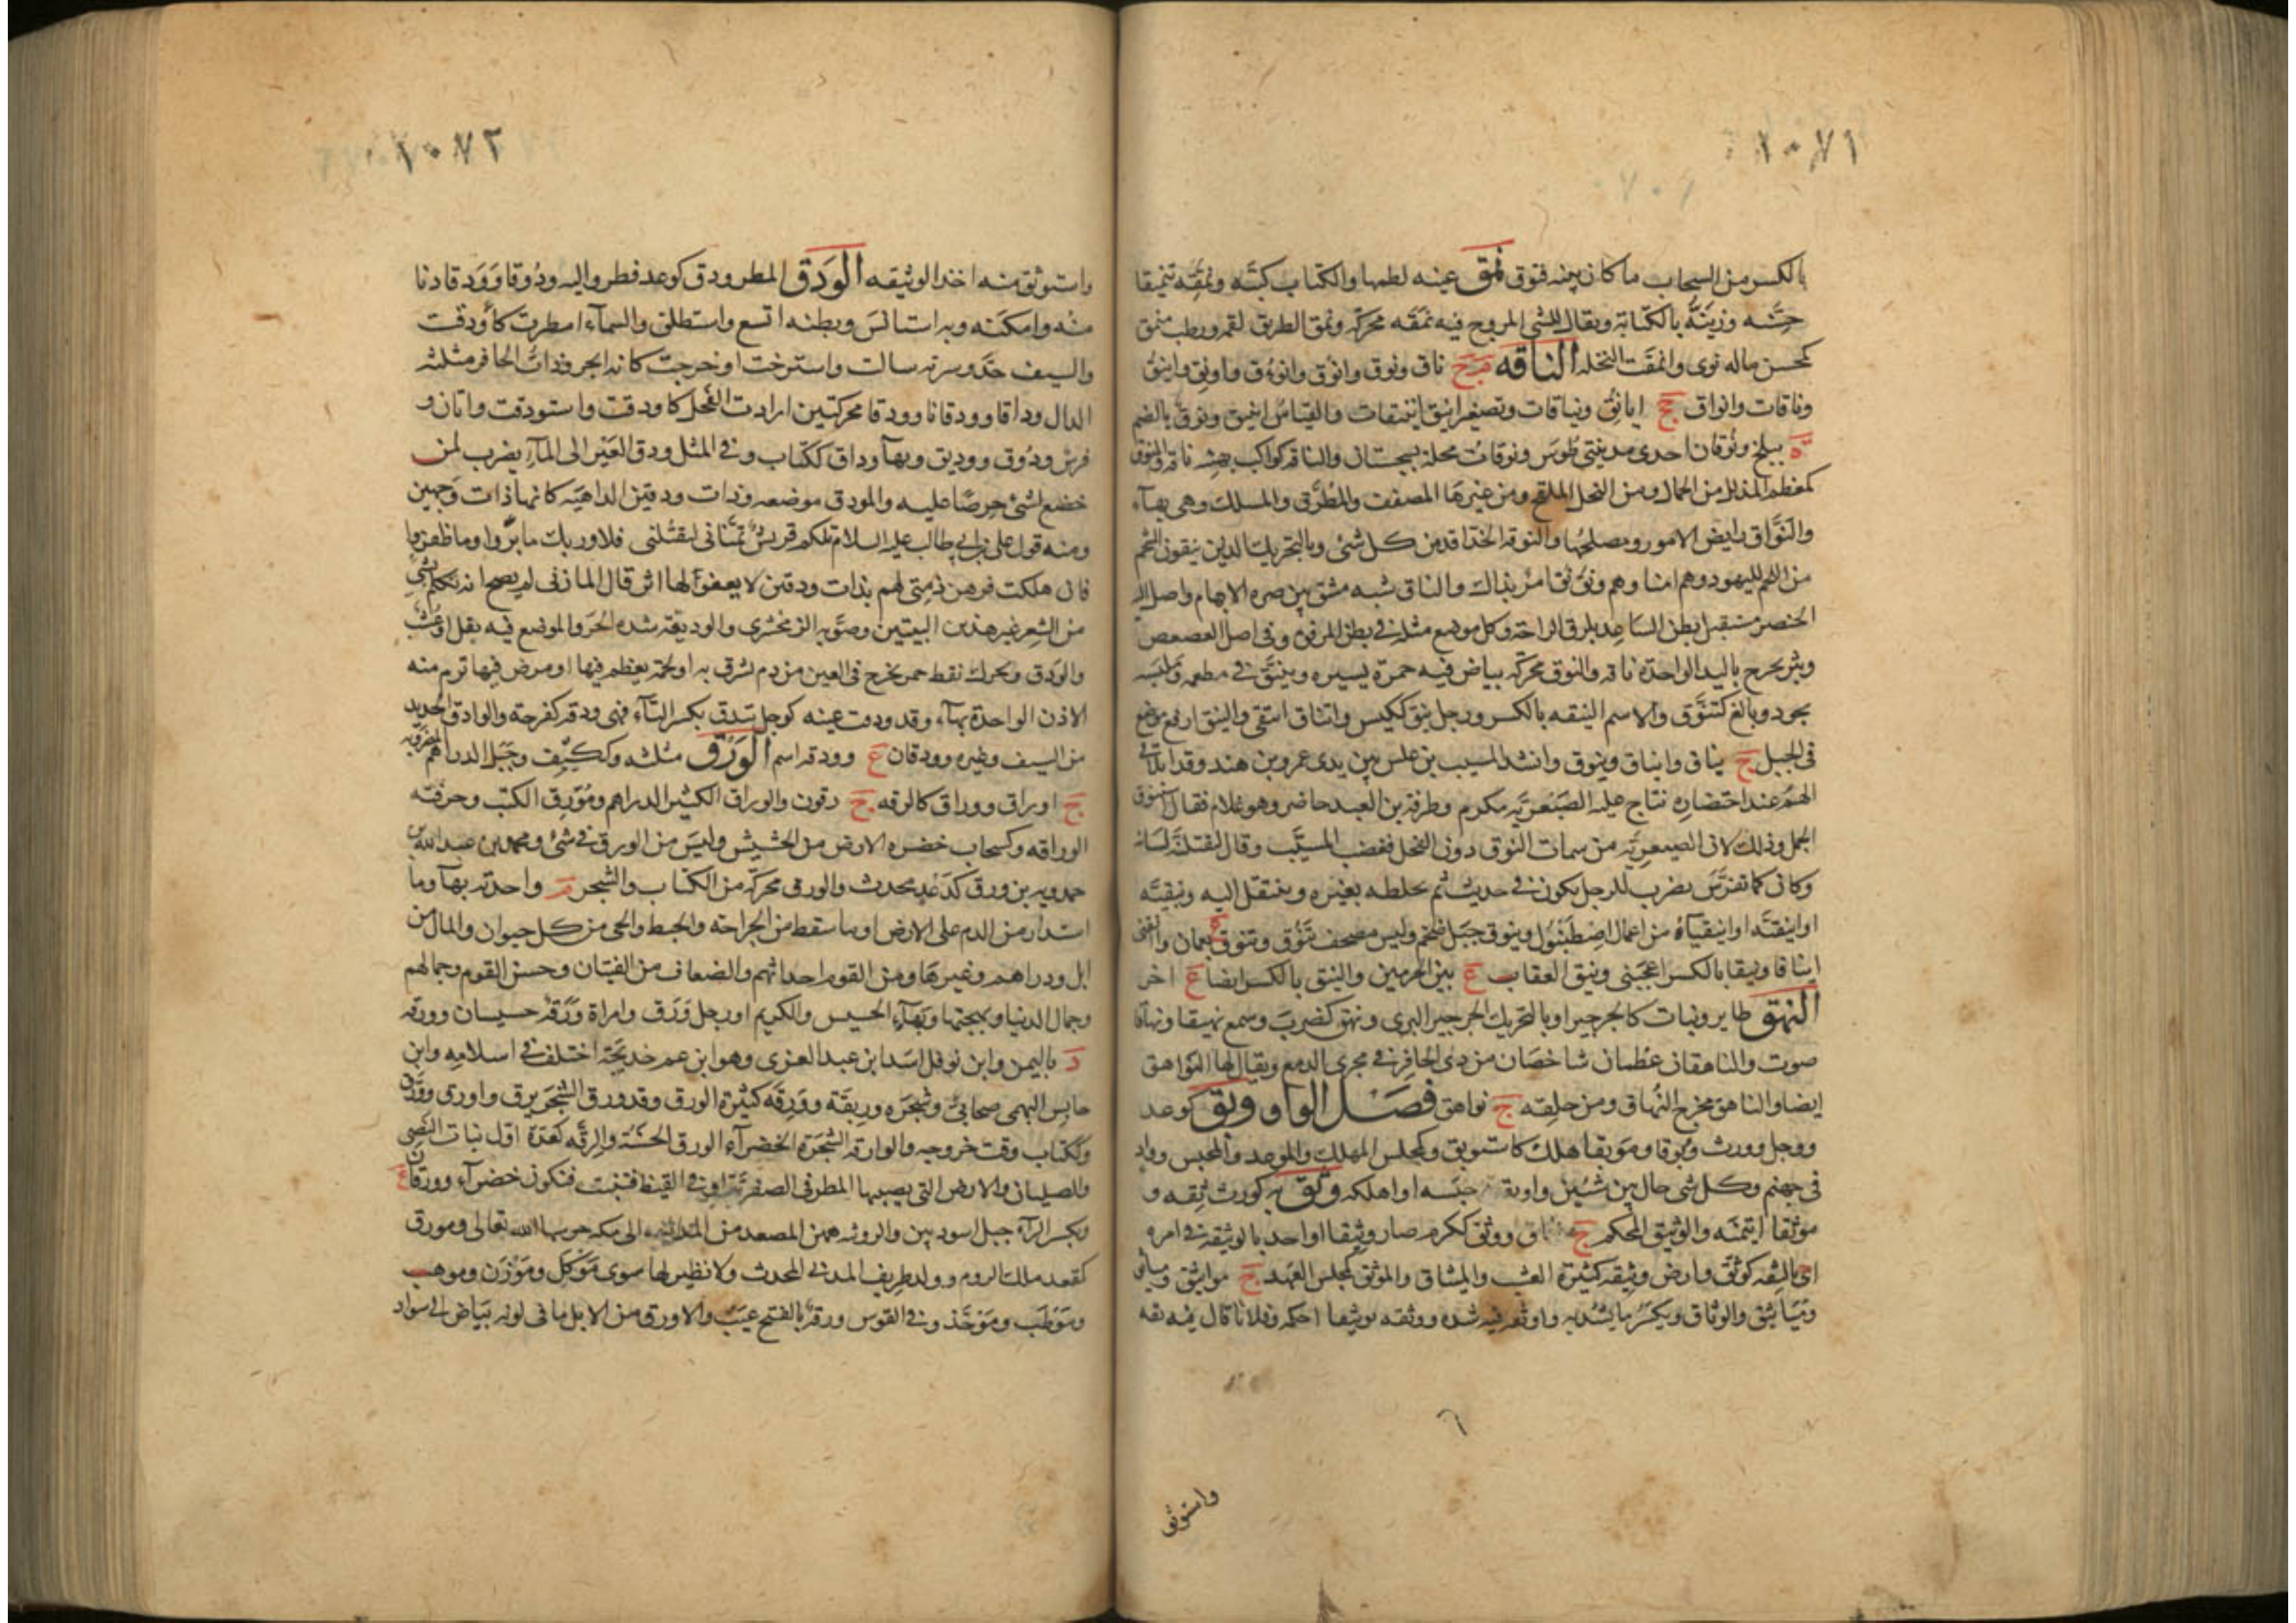 ١٠٧١
بالكسر من السحاب ما كان بينه فتوق نمق عينه لطمها والكتاب كتبه ونمقه تنميقا
حسنه وزينه بالكتابة ويقال للشي المروح فيه نمقه محركة ونمق الطريق لقمه ورطب منمق
كمحسن ماله نوى وانمقت النخله الناقه م ج ناق ونوق وانوق وانوءق واونق واينق
وناقات وانواق جج ايانق ونياقات وتصغير اينق اينقات والقياس ايينق ونوق بالضم
ة ببلخ ونوقان احدى مدينتي طوس ونوقات محلة بسجستان والناقة كواكب بهيئة ناقة والمنوق
كمعظم المذلل من الجمال ومن النخل الملقح ومن غيرها المصفف والمطرق والمسلك وهي بهآء
والنواق رايض الامور ومصلحها والنوقة الحذاقة من كل شئ وبالتحريك الذين ينقون الشحم
من اللحم لليهود وهم امناوهم ونق نق امر بذاك والناق شبه مشق بين ضرة الابهام واصل الية
الخنصر مستقبل بطن الساعد بلزق الراحة وكل موضع مثله في بطن المرفق وفي اصل العصعص
وبثر يخرج باليد الواحدة ناقة والنوق محركة بياض فيه حمرة يسيره وينيق في مطعمه وملبسه
يجود وبالغ كتنوق والاسم النيقه بالكسر ورجل نيق ككيس وانتاق انتقى والنيق ارفع موضع
في الجبل ج نياق وانياق ونيوق وانشد المسيب بن علس بين يدى عمرو بن هند وقد اتلافى
الهم عند احتضاره بناج عليه الصيعرية مكرم وطرفة بن العبد حاضر وهو غلام فقال استنوق
الجمل وذلك لان الصيعرية من سمات النوق دون الفحل فغضب المسيب وقال ليقتلنه لسانه
وكان كما تفرس يضرب للرجل يكون في حديث ثم يخلطه بغيره وينتقل اليه ونيقيه
او اينقد او اينقياة من اعمال اصطنبول وينوق جبل ضخم وليس مصحف تنوق وتنوق ع بعمان وانقني
ايناقا ونيقا بالكسر اعجبني ونيق العقاب ع بين الحرمين والنيق بالكسر ايضا ع اخر
النهق طاير ونبات كالجرجير او بالتحريك الجرجير البرى ونهق كضرب وسمع نهيقا ونهاقا
صوت والناهقان عظمان شاخصان من ذى الحافر في مجرى الدمع ويقال لها النواهق
ايضا والناهق مخرج النهاق ومن حلقه ج نواهق فصل الواو وبق كوعد
ووجل وورث وبوقا وموبقا هلك كاستوبق وكمجلس المهلك والموعد والمحبس وواد
في جهنم وكل شي حال بين شيئين واوبقه حبسه او اهلكه وثق به كورث ثقه و
موثقا ايتمنه والوثيق المحكم ج وثاق ووثق ككرم صار وثيقا او اخذ بالوثيقة في امره
اى بالثقه كوثق وارض وثيقه كثيرة العشب والميثاق والموثق كمجلس العهد ج مواثيق ومياثق
ومياثيق والوثاق ويكسر ما يشد به واوثقه فيه شده ووثقه توثيقا احكمه وفلانا قال فيه ثقه
واستوثق
١٠٧٢
واستوثق منه اخذ الوثيقه الودق المطر ودق كوعد قطر واليه ودوقا وودقا دنا
منه وامكنه وبه استانس وبطنه اتسع واستطلق والسمآء امطرت كأودقت
والسيف حد وسرته سالت واسترخت او خرجت كانه ابجر وذات الحافر مثلثه
الدال وداقا وودقانا وودقا محركتين ارادت الفحل كاودقت واستودقت واتان و
فرس ودوق ووديق وبها وداق ككتاب وفي المثل ودق العير الى المآء يضرب لمن
خضع لشئ حرصا عليه والمودق موضعه وذات ودقين الداهيه كانها ذات وجهين
ومنه قول علي بن ابي طالب عليه السلام تلكم قريش تمناني لتقتلني فلا وربك ما بروا وما ظفروا
فان هلكت فرهن ذمتي لهم بذات ودقين لا يعفو لها اثر قال المازني لم يصح انه تكلم بشئ
من الشعر غير هذين البيتين وصوبه الزمخشرى والوديقه شدة الحر والموضع فيه بقل او عشب
والودق ويحرك نقط حمر تخرج في العين من دم تشرق به او لحمة تعظم فيها او مرض فيها ترم منه
الاذن الواحدة بهآء وقد ودقت عينه كوجل تيدق بكسر التآء فهي ودقه كفرحة والوادق الحديد
من السيف وغيره وودقان ع وودقه اسم الورق مثلثه وككتف وجبل الدراهم المضروبه
ج اوراق ووراق كالرقه ج رقون والوراق الكثير الدراهم ومورق الكتب وحرفته
الوراقه وكسحاب خضرة الارض من الحشيش وليس من الورق في شئ ومحمد بن عبد الله بن
حمدويه بن ورق كذغد محدث والورق محركة من الكتاب والشجر م واحدته بهآ وما
استدار من الدم على الارض او ما سقط من الجراحه والخبط والحى من كل حيوان والمال من
ابل ودراهم وغيرها ومن القوم احداثهم والضعاف من الفتيان وحسن القوم وجمالهم
وجمال الدنيا وبهجتها وبهآء الخسيس والكريم او رجل ورق وامراة ورقه خسيسان وورقه
د باليمن وابن نوفل اسد ابن عبد العزى وهو ابن عم خديجة اختلف في اسلامه وابن
حابس التميمى صحابي وشجره وريقة وورقه كثيرة الورق وقد ورق الشجر يرق واورق وورق
وككتاب وقت خروجه والوارقه الشجرة الخضرآء الورق الحسنة والرقه كعدة اول نبات النصى
والصليان والارض التي يصيبها المطر في الصفرية او في القيظ فتنبت فتكون خضرآء وورقان ع
وبكسر الرآء جبل اسود بين والرويثه همن المصعد من المدينه الى مكة حرسها الله تعالى ومورق
كمقعد ملك الروم ووالد طريف المدني المحدث ولا نظير لها سوى موكل وموزن وموهب
وموظب وموحد وفي القوس ورقة بالفتح عيب والاورق من الابل ما في لونه بياض الى سواد